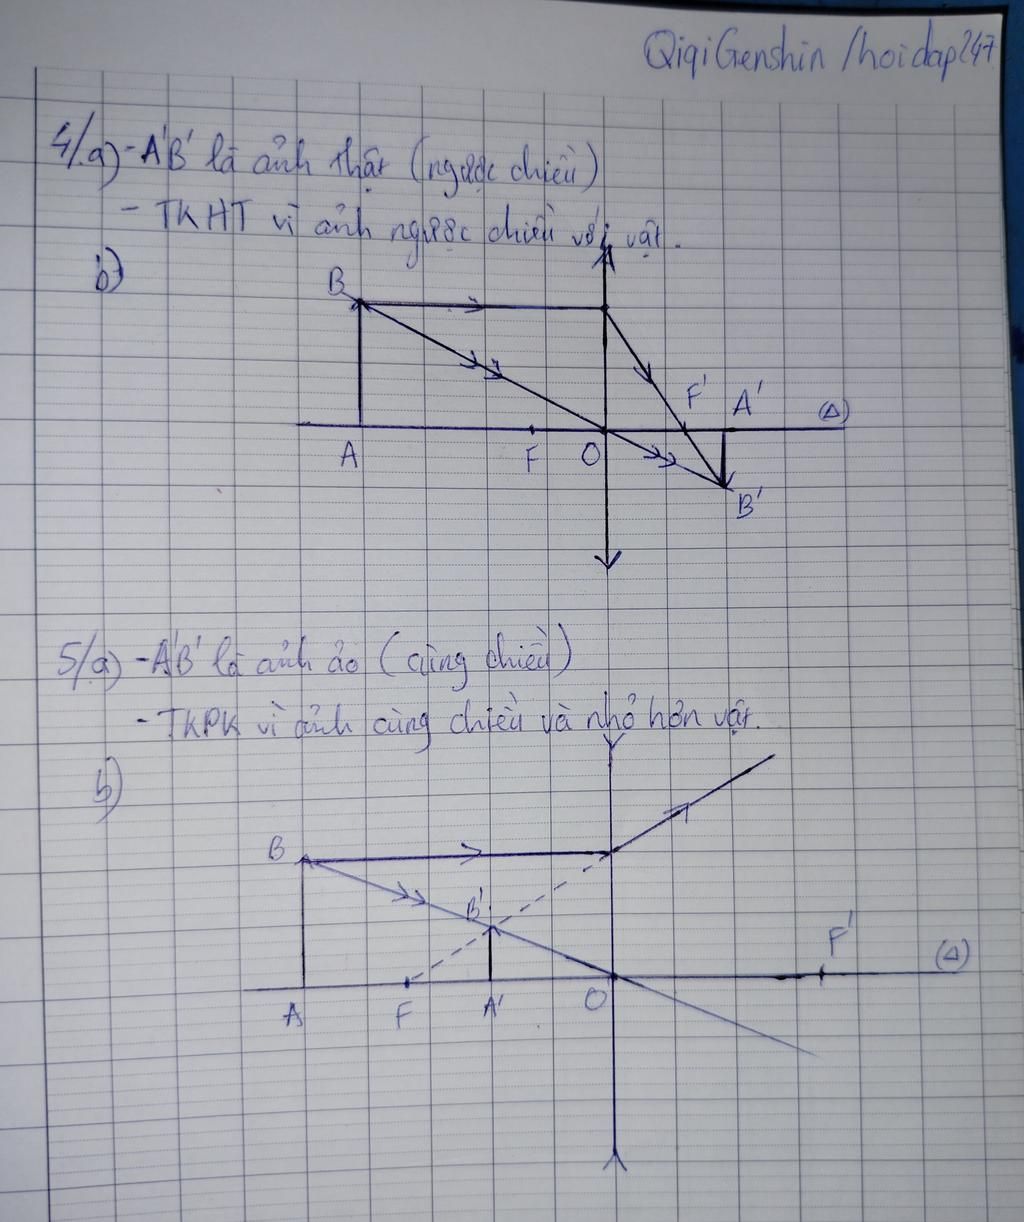 QiqiGenshin /hoidap247
4/.a) - A'B' là ảnh thật (ngược chiều)
- TKHT vì ảnh ngược chiều với vật.
b)
B
F' A' (Δ)
A F O
B'
5/a) - A'B' là ảnh ảo (cùng chiều)
- TKPK vì ảnh cùng chiều và nhỏ hơn vật.
b)
B
B'
F' (Δ)
A F A' O